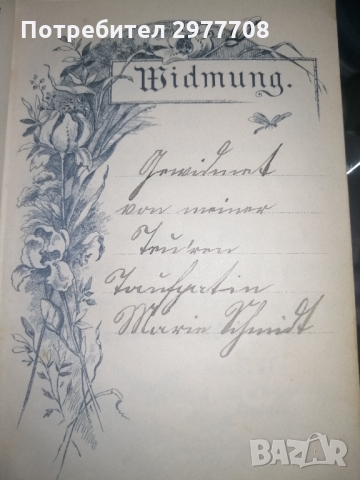 Потребител 2977708
Widmung.
Gewidmet
von meiner
Teu'ren
Taufpatin
Marie Schmidt
BAZAR